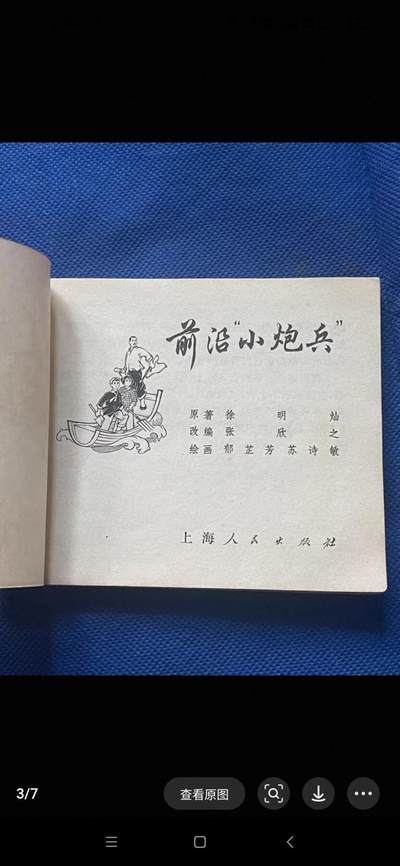 前沿“小炮兵”
原著徐明灿
改编张欣之
绘画郁芷芳苏诗敏
上海人民出版社
3/7
查看原图